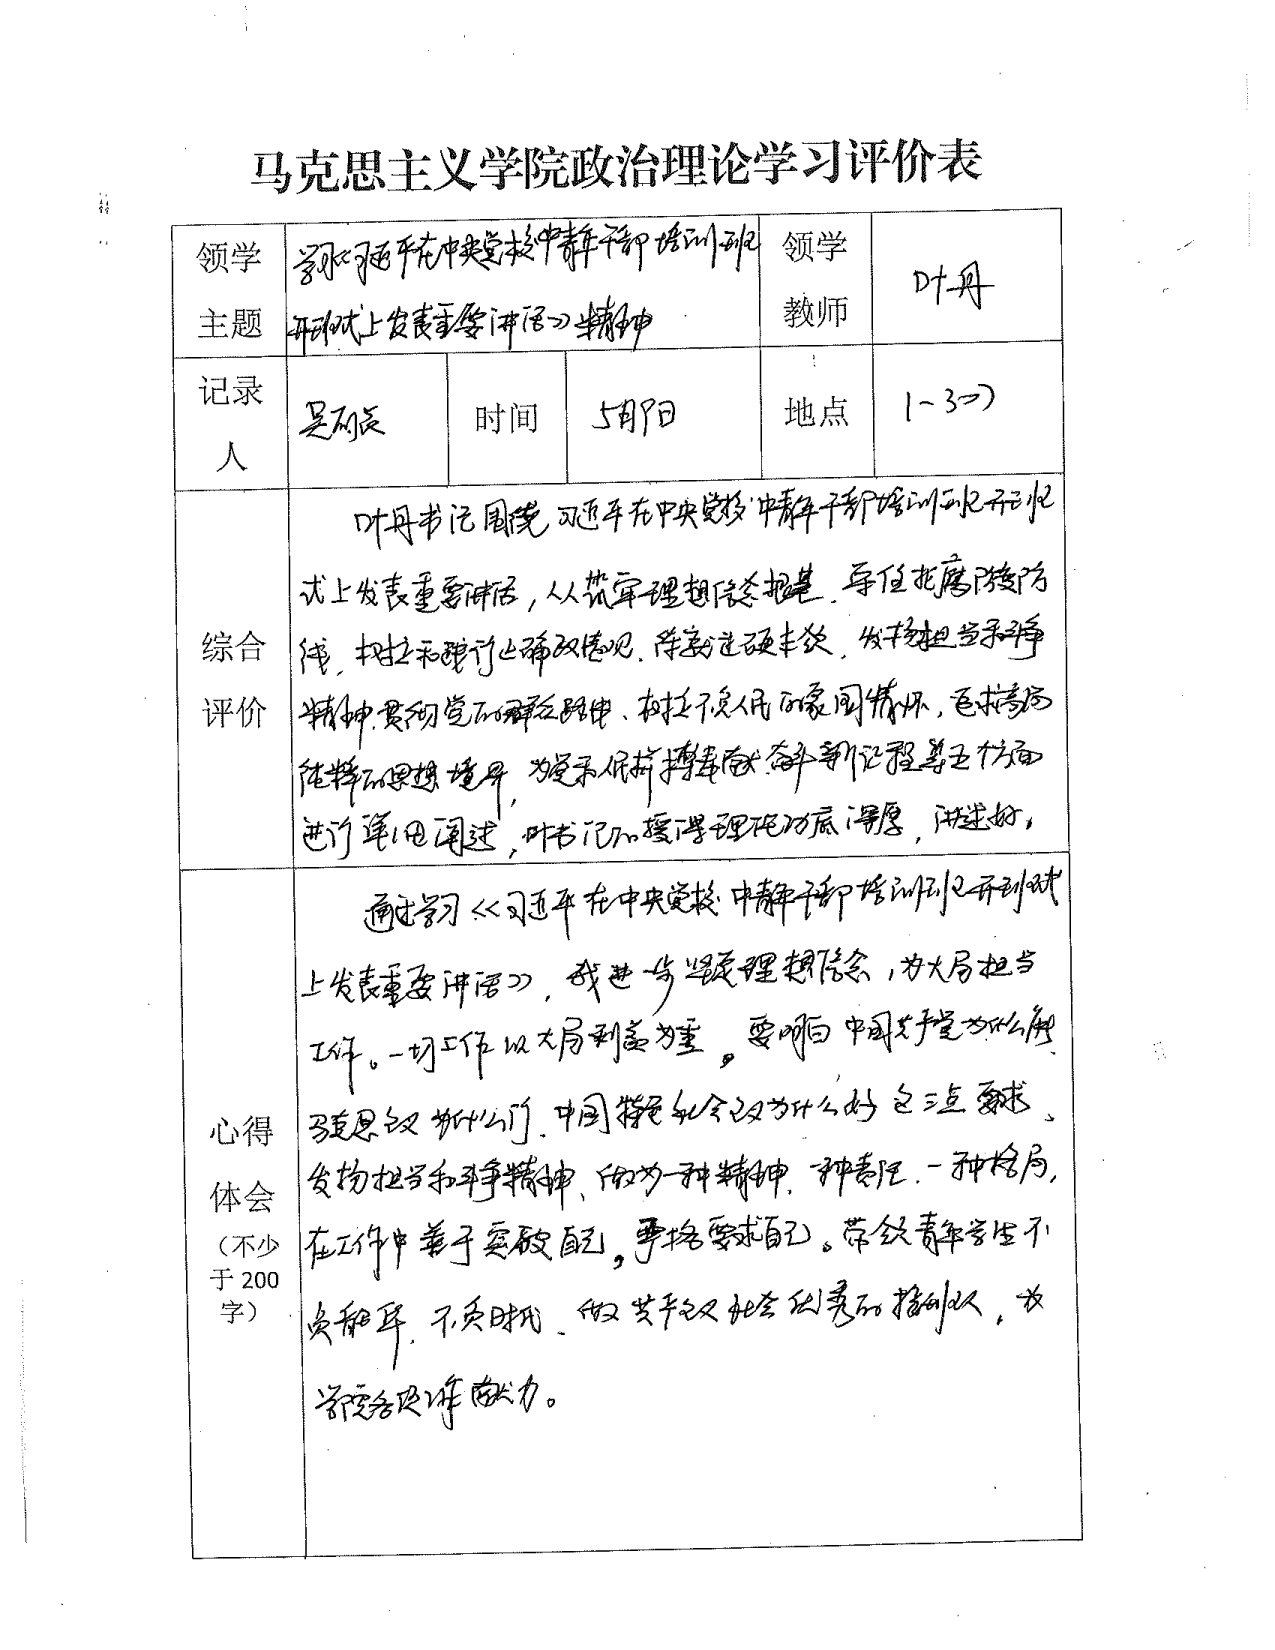 马克思主义学院政治理论学习评价表
领学主题
学习《习近平在中央党校中青年干部培训班
开班式上发表重要讲话》精神
领学教师
叶丹
记录人
时间
5月9日
地点
1-307
综合评价
叶丹书记围绕习近平在中央党校中青年干部培训班开班
式上发表重要讲话，从筑牢理想信念根基、守住拒腐防变防
线、树立和践行正确政绩观、练就过硬本领、发扬担当和斗争
精神、贯彻党的群众路线、树立不负人民的家国情怀，追求高尚
纯粹的思想境界，为党和人民拼搏奉献奋斗新征程等五个方面
进行详细阐述，叶书记的授课理论功底深厚，讲述好。
心得体会
（不少于200字）
通过学习《习近平在中央党校中青年干部培训班开班式
上发表重要讲话》，我进一步坚定理想信念，为大局担当
工作。一切工作以大局利益为重。要明白中国共产党为什么能
马克思主义为什么行、中国特色社会主义为什么好这三点要求、
发扬担当和斗争精神、做为一种精神、一种责任、一种格局，
在工作中善于突破自己，严格要求自己。带领青年学生不
负韶华、不负时代、做共产主义社会优秀的接班人，为
学院各项工作献力。